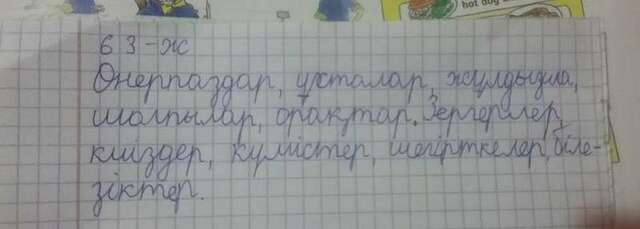 hot dog
63-ж
Өнерпаздар, ұсталар, жұлдызша,
шолпылар, орақтар. Зергерлер,
киіздер, күмістер, шегірткелер, біле-
зіктер.